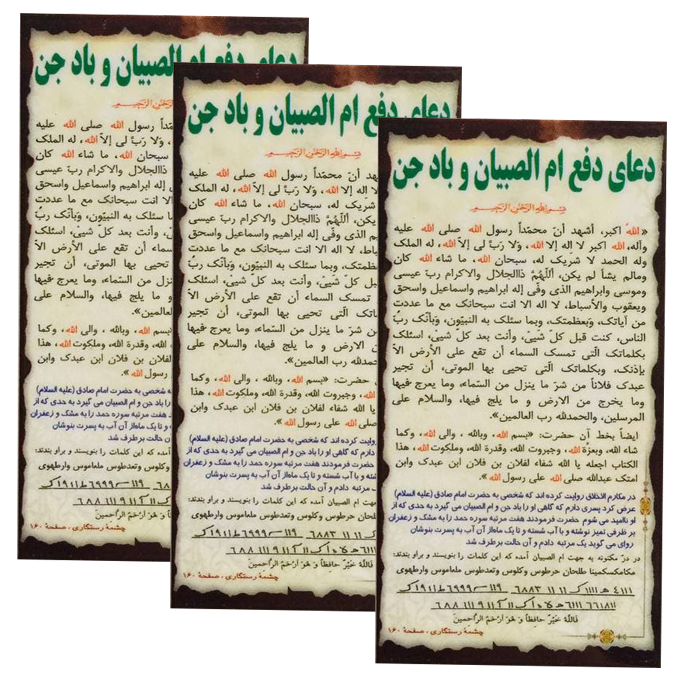 دعای دفع ام الصبیان و باد جن
بسم الله الرحمن الرحیم
« الله اکبر، أشهد أنّ محمّداً رسول الله صلی الله علیه
وآله، الله اکبر لا إله إلا الله، ولا رَبَّ لی إلاّ الله، له الملک
وله الحمد لا شریک له، سبحان الله، ما شاء الله کان
ومالم یشأ لم یکن، أللّهُمَّ ذاالجلال والاکرام ربّ عیسی
وموسی وابراهیم الذی وفّی إله ابراهیم واسماعیل واسحق
ویعقوب والأسباط، لا اله الا انت سبحانک مع ما عددت
من آیاتک، وبعظمتک، وبما سئلک به النبیّون، وَبأنّک ربّ
الناس، کنت قبل کلّ شییْ، وأنت بعد کلّ شییْ، اسئلک
بکلماتک الّتی تمسک السماء أن تقع علی الأرض الاّ
بإذنک، وبکلماتک الّتی تحیی بها الموتی، أن تجیر
عبدک فلاناً من شرّ ما ینزل من السّماء، وما یعرج فیها
وما یخرج من الارض و ما یلج فیها، والسلام علی
المرسلین، والحمدلله رب العالمین».
ایضاً بخط آن حضرت: «بسم الله، وبالله ، والی الله، وکما
شاء الله، وبعزة الله، وجبروت الله، وقدرة الله، وملکوت الله، هذا
الکتاب اجعله یا الله شفاء لفلان بن فلان ابن عبدک وابن
امتک عبدالله صلی الله علی رسول الله ».
در مکارم الاخلاق روایت کرده اند که شخصی به حضرت امام صادق (علیه السلام)
عرض کرد پسری دارم که گاهی او را باد جن و ام الصبیان می گیرد به حدی که از
او ناامید می شوم حضرت فرمودند هفت مرتبه سوره حمد را به مشک و زعفران
بر ظرفی تمیز نوشته و با آب شسته و تا یک ماه‌از آن آب به پسرت بنوشان
روای می گوید یک مرتبه دادم و آن حالت برطرف شد
در درّ مکنونه به جهت ام الصبیان آمده که این کلمات را بنویسند و براو بندند:
فَاللَّهُ خَیْرٌ حافِظاً وَ هُوَ أَرْحَمُ الرَّاحِمینَ
چشمهٔ رستگاری ، صفحهٔ ۱۶۰